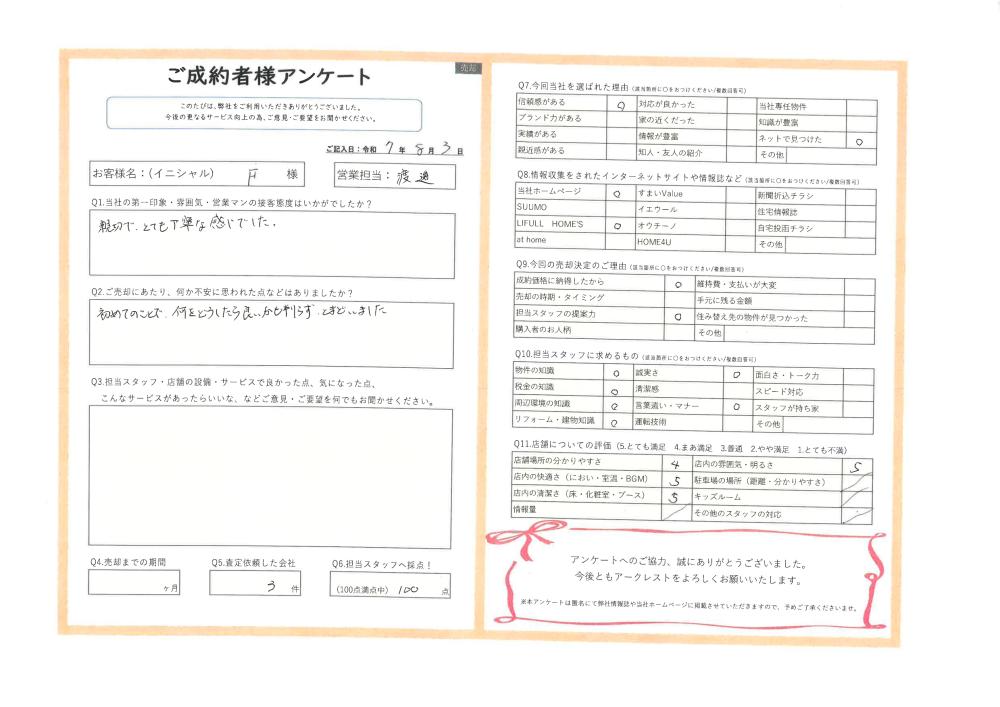 売却
ご成約者様アンケート
このたびは、弊社をご利用いただきありがとうございました。
今後の更なるサービス向上の為、ご意見・ご要望をお聞かせください。
ご記入日:令和 7 年 8 月 3 日
お客様名:(イニシャル) 様
営業担当: 渡邉
Q1.当社の第一印象・雰囲気・営業マンの接客態度はいかがでしたか?
親切で、とても丁寧な感じでした。
Q2.ご売却にあたり、何か不安に思われた点などはありましたか?
初めてのことで、何をどうしたら良いかも判らず、とまどいました
Q3.担当スタッフ・店舗の設備・サービスで良かった点、気になった点、
こんなサービスがあったらいいな、などご意見・ご要望を何でもお聞かせください。
Q4.売却までの期間
ヶ月
Q5.査定依頼した会社
3 件
Q6.担当スタッフへ採点!
(100点満点中) 100 点
Q7.今回当社を選ばれた理由 (該当箇所に〇をおつけください/複数回答可)
信頼感がある ○ 対応が良かった 当社専任物件
ブランド力がある 家の近くだった 知識が豊富
実績がある 情報が豊富 ネットで見つけた ○
親近感がある 知人・友人の紹介 その他
Q8.情報収集をされたインターネットサイトや情報誌など (該当箇所に〇をおつけください/複数回答可)
当社ホームページ ○ すまいValue 新聞折込チラシ
SUUMO イエウール 住宅情報誌
LIFULL HOME'S ○ オウチーノ 自宅投函チラシ
at home HOME4U その他
Q9.今回の売却決定のご理由 (該当箇所に〇をおつけください/複数回答可)
成約価格に納得したから ○ 維持費・支払いが大変
売却の時期・タイミング 手元に残る金額
担当スタッフの提案力 ○ 住み替え先の物件が見つかった
購入者のお人柄 その他
Q10.担当スタッフに求めるもの (該当箇所に〇をおつけください/複数回答可)
物件の知識 ○ 誠実さ ○ 面白さ・トーク力
税金の知識 ○ 清潔感 スピード対応
周辺環境の知識 ○ 言葉遣い・マナー ○ スタッフが持ち家
リフォーム・建物知識 ○ 運転技術 その他
Q11.店舗についての評価 (5.とても満足 4.まあ満足 3.普通 2.やや満足 1.とても不満)
店舗場所の分かりやすさ 4 店内の雰囲気・明るさ 5
店内の快適さ(におい・室温・BGM) 5 駐車場の場所(距離・分かりやすさ)
店内の清潔さ(床・化粧室・ブース) 5 キッズルーム
情報量 その他のスタッフの対応
アンケートへのご協力、誠にありがとうございました。
今後ともアークレストをよろしくお願いいたします。
※本アンケートは匿名にて弊社情報誌や当社ホームページに掲載させていただきますので、予めご了承くださいませ。